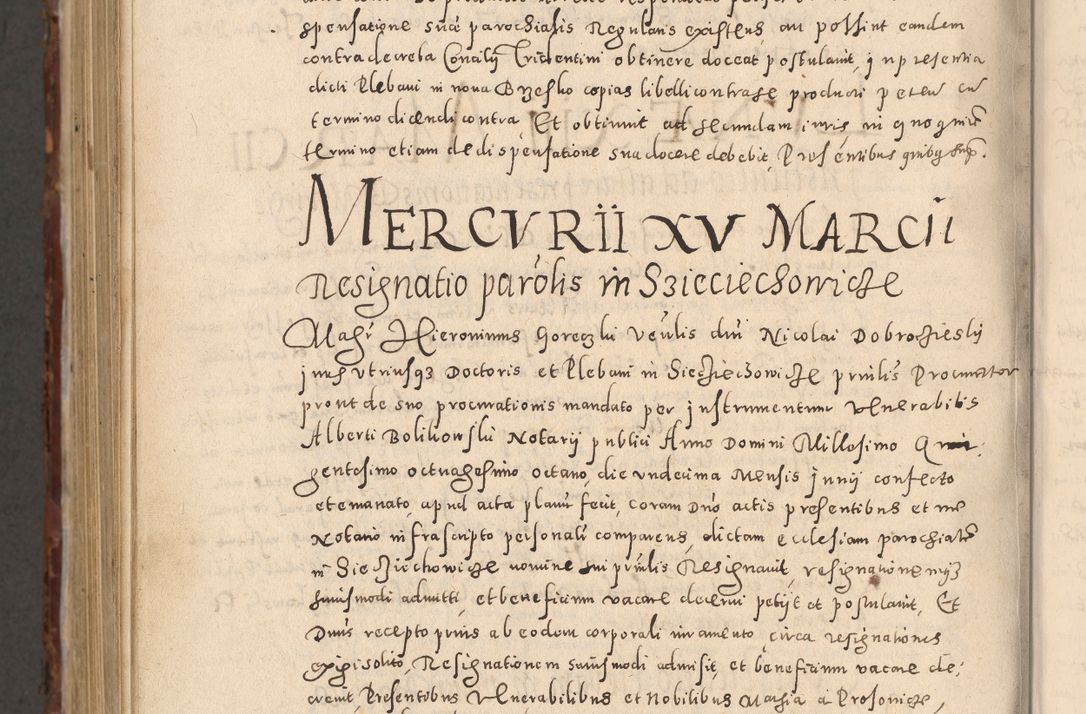 spensatione suae parochialis Regularis existens an possint eandem
contra decreta Concilij Tridentini obtinere doceat postulavit, in presentia
dicti Plebani in nova Brzesko copias libelli contra se producti petens cum
termino dicendi contra Et obtinuit ad secundam iuris in quo quidem
termino etiam de dispensatione sua docere debebit, Presentibus quibus supra.
MERCVRII XV MARCII
Resignatio parolis in Szieciechowicze
Magr Hieronimus Goreczki Venlis dni Nicolai Dobroczieski
juris vtriusqz Doctoris et Plebani in Sieciechowicze prnlis Procurator
prout de suo procurationis mandato per instrumentum venerabilis
Alberti Bolikowski Notarij publici Anno Domini Millesimo Quin
gentesimo octuagesimo octavo, die vndecima Mensis Junij confecto
et emanato, apud acta planu fecit, coram Dno actis presentibus et me
Notario infrascripto personali comparens, dictam ecclesiam parochialem
in Sieciechowicze nomine sui prnlis Resignavit, resignationemqz
huiusmodi admitti, et beneficium vacare decerni petijt et postulavit, Et
Dnus recepto prius ab eodem corporali iuramento, circa resignationes
exigi solito, Resignationem huiusmodi admisit, et beneficium vacare de,
crevit, Presentibus Venerabilibus et Nobilibus Mathia a Prosowicze,